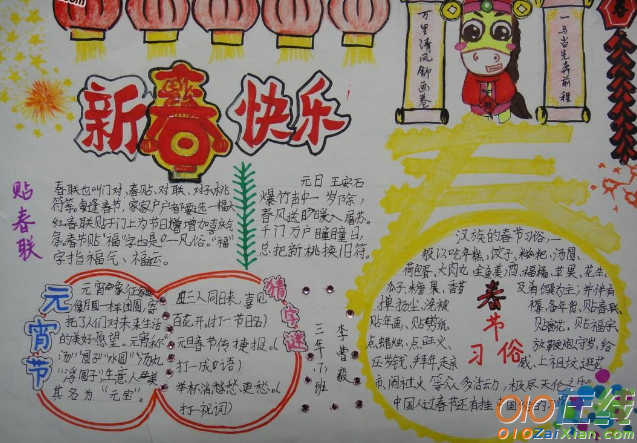 新春快乐
万里清风铺画卷
一马当先奔前程
春
贴春联
春联也叫门对、春贴、对联、对子,桃
符等。每逢春节,家家户户都要选一幅大
红春联贴于门上,为节日增加喜庆气
春节贴“福”字也是一风俗。“福”
字指福气、福运。
元日 王安石
爆竹声中一岁除,
春风送暖入屠苏。
千门万户曈曈日,
总把新桃换旧符。
元宵节
元宵象征
像月圆一样团圆,寄
托了人们对未来生活
的美好愿望。元宵称“
汤”“圆子”“水圆”“汤丸
“浮圆子”,生意人
其名为“元宝”。
猜字谜
三人同日来,喜见
百花开。(打一节日名)
元旦春节传捷报。(
打一成语)
举杯消愁愁更愁。(
打一祝词)
三年(1)班
李
春节习俗
汉族的春节习俗,一
般以吃年糕、饺子、糍粑、汤圆、
荷包蛋、大肉丸、全鱼、美酒、福橘、苹果、花生、
瓜子、糖果、香茗
掸扬尘、洗被
贴年画、贴
点蜡烛、点旺火、
给压岁钱、拜年、走亲
福、备年货、贴春联
放鞭炮、守岁、给
市、闹社火等众多活动,极尽天伦之乐
中国人过春节还有挂
010在线
010ZaiXian.com
.com